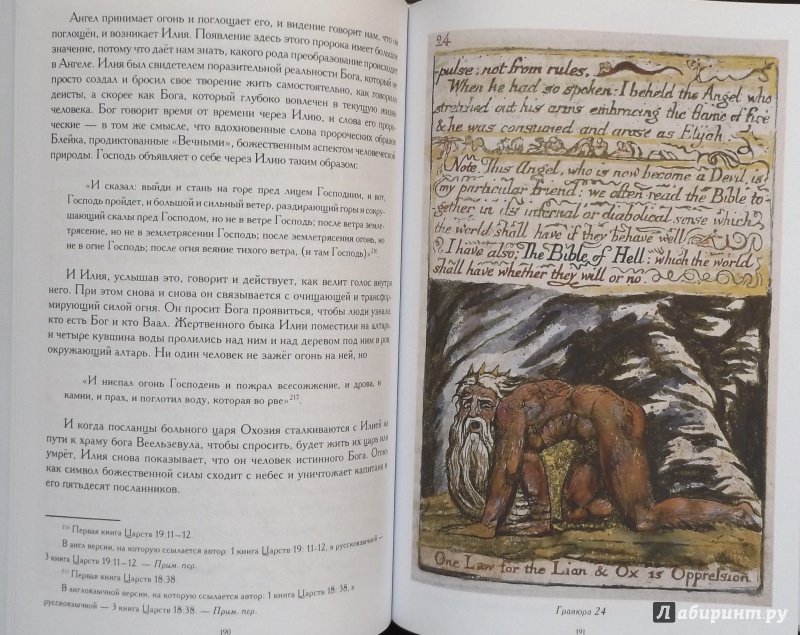 Ангел принимает огонь и поглощает его, и видение говорит нам, что он
поглощён, и возникает Илия. Появление здесь этого пророка имеет большое
значение, потому что даёт нам знать, какого рода преобразование происходит
в Ангеле. Илия был свидетелем поразительной реальности Бога, который не
просто создал и бросил свое творение жить самостоятельно, как говорили
деисты, а скорее как Бога, который глубоко вовлечен в текущую жизнь
человека. Бог говорит время от времени через Илию, и слова его проро-
ческие — в том же смысле, что вдохновенные слова пророческих образов
Блейка, продиктованные «Вечными», божественным аспектом человеческой
природы. Господь объявляет о себе через Илию таким образом:
«И сказал: выйди и стань на горе пред лицем Господним, и вот,
Господь пройдет, и большой и сильный ветер, раздирающий горы и сокру-
шающий скалы пред Господом, но не в ветре Господь; после ветра земле-
трясение, но не в землетрясении Господь; после землетрясения огонь, но
не в огне Господь; после огня веяние тихого ветра, (и там Господь)»
И Илия, услышав это, говорит и действует, как велит голос внутри
него. При этом снова и снова он связывается с очищающей и трансфор-
мирующий силой огня. Он просит Бога проявиться, чтобы люди узнали,
кто есть Бог и кто Ваал. Жертвенного быка Илии поместили на алтарь,
и четыре кувшина воды пролились над ним и над деревом под ним в ров,
окружающий алтарь. Ни один человек не зажёг огонь на ней, но
«И ниспал огонь Господень и пожрал всесожжение, и дрова, и
камни, и прах, и поглотил воду, которая во рве»217.
И когда посланцы больного царя Охозия сталкиваются с Илией на
пути к храму бога Веельзевула, чтобы спросить, будет жить их царь или
умрёт, Илия снова показывает, что он человек истинного Бога. Огонь
как символ божественной силы сходит с небес и уничтожает капитана и
его пятьдесят посланников.
216 Первая книга Царств 19:11–12.
В англ версии, на которую ссылается автор: 1 книга Царств 19: 11-12, в русскоязычной —
3 книга Царств 19:11–12. — Прим. пер.
217 Первая книга Царств 18:38.
В англоязычной версии, на которую ссылается автор: 1 книга Царств 18: 38, в
русскоязычной — 3 книга Царств 18:38. — Прим. пер.
190
24
pulse: not from rules.
When he had so spoken: I beheld the Angel who
stretched out his arms embracing the flame of fire
& he was consumed and arose as Elijah.
Note. This Angel, who is now become a Devil, is
my particular friend: we often read the Bible to-
gether in its infernal or diabolical sense which
the world shall have if they behave well
I have also: The Bible of Hell: which the world
shall have whether they will or no.
One Law for the Lion & Ox is Oppression
Гравюра 24
191
Лабиринт.ру